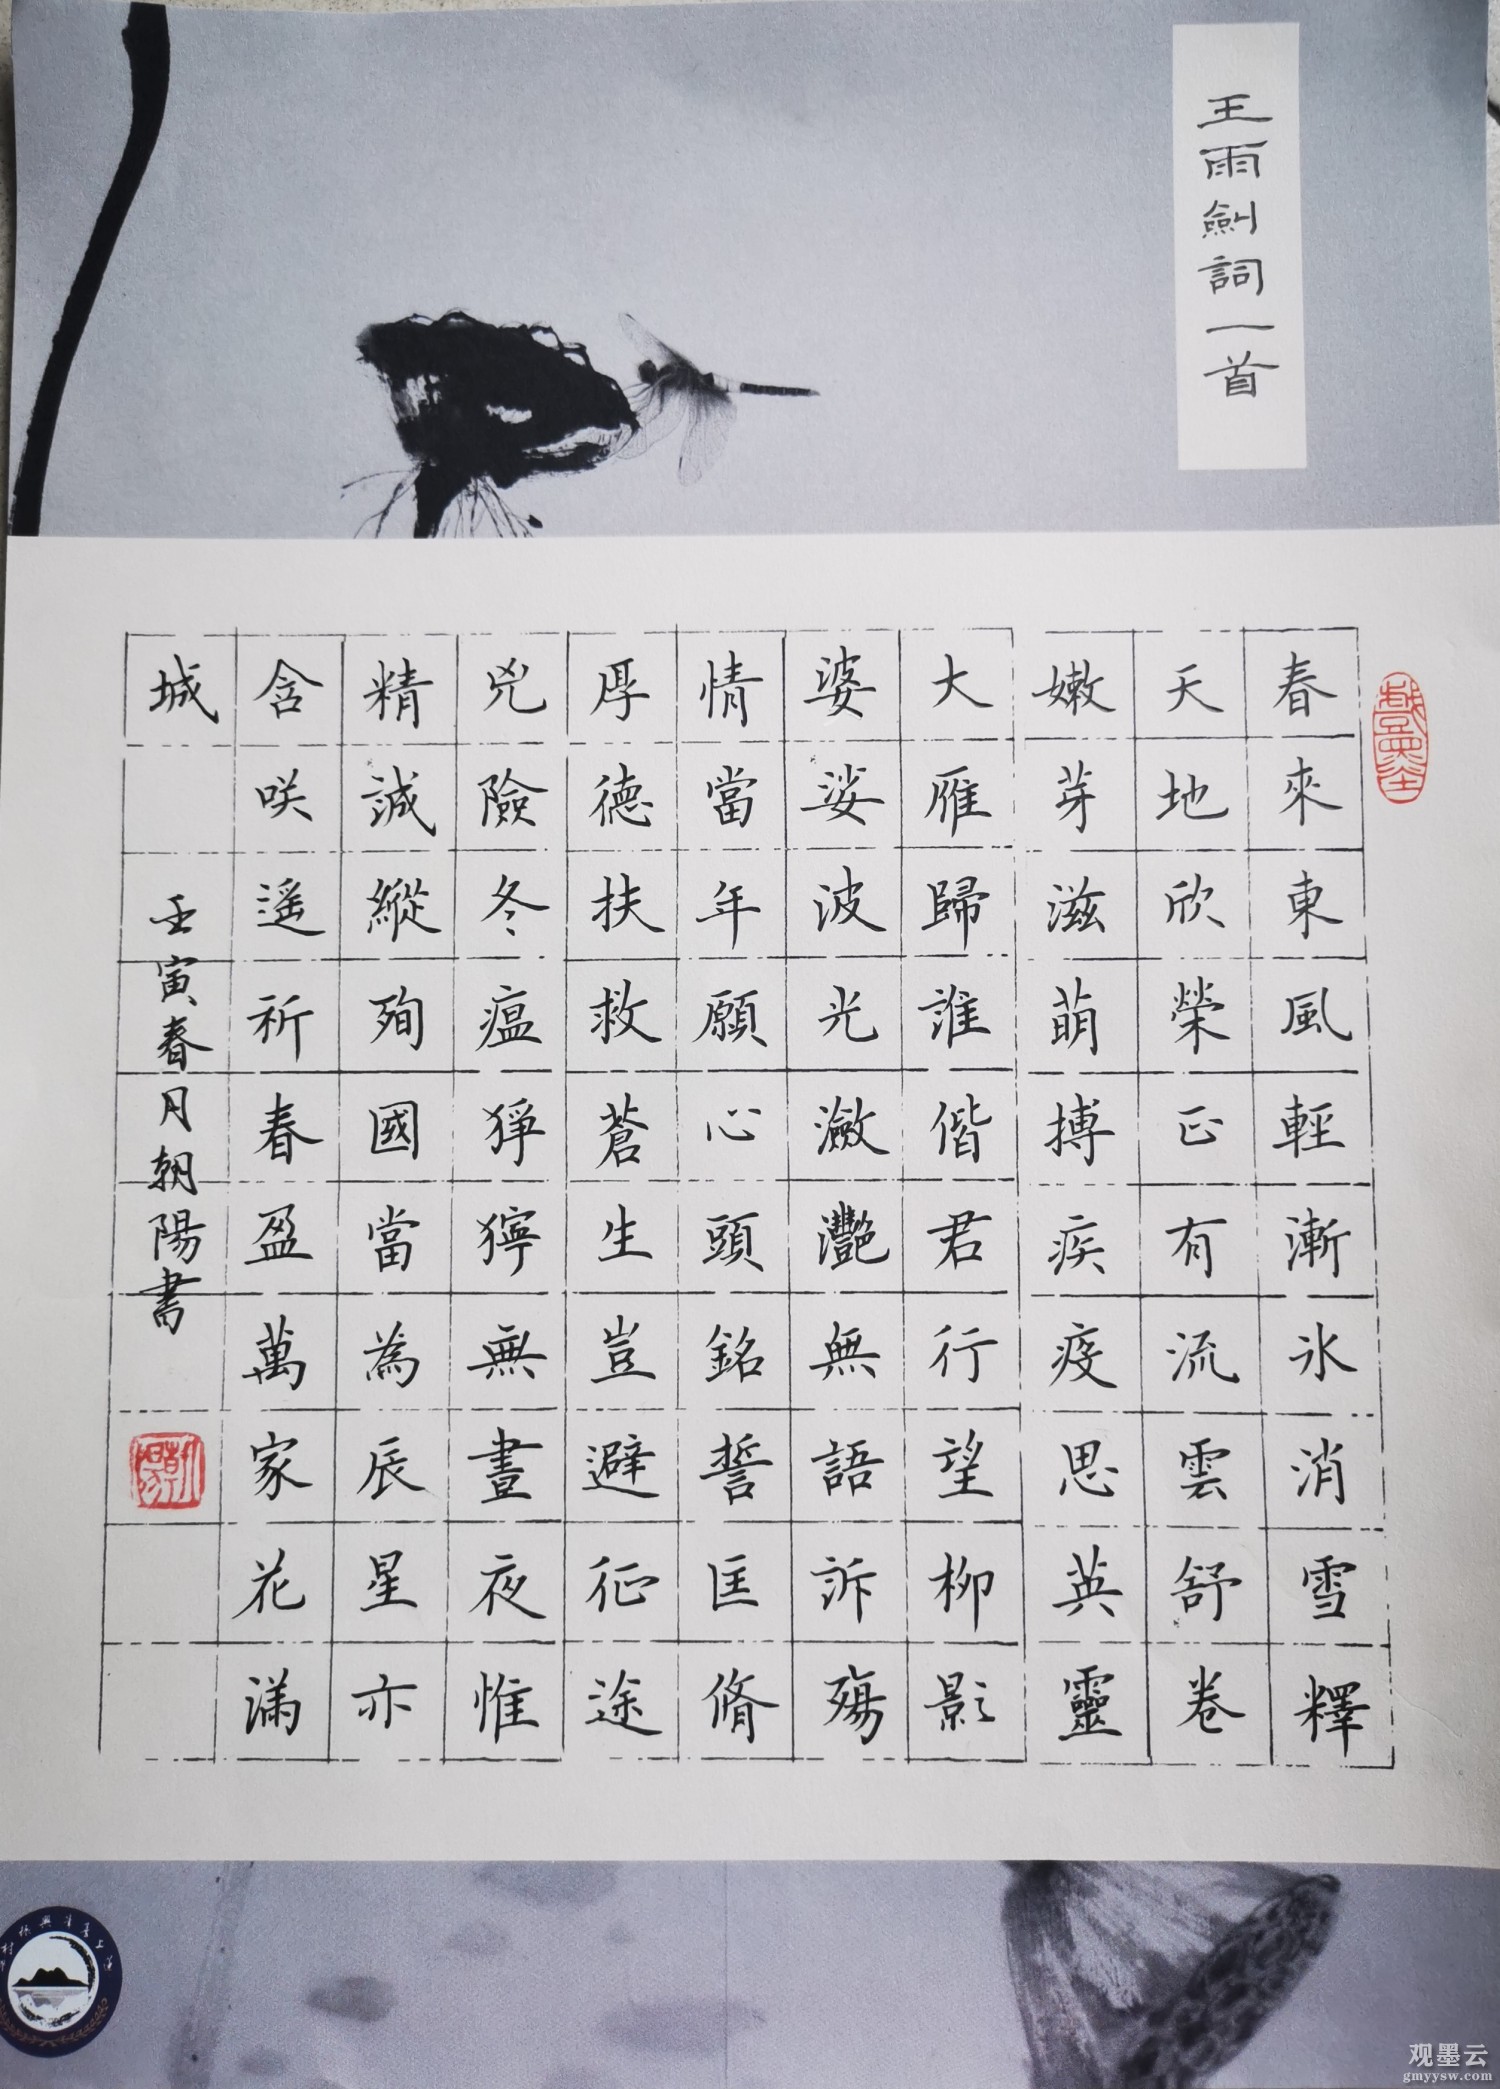 王雨劍詞一首
春來東風輕漸氷消雪釋
天地欣榮正有流雲舒卷
嫩芽滋萌搏疾疫思英靈
大雁歸誰偕君行望柳影
婆娑波光瀲灧無語訴殤
情當年願心頭銘誓匡脩
厚德扶救蒼生豈避征途
兇險冬瘟猙獰無晝夜惟
精誠縱殉國當為辰星亦
含咲遥祈春盈萬家花滿
城
壬寅春月朝陽書
朝陽
观墨云
gmyysw.com